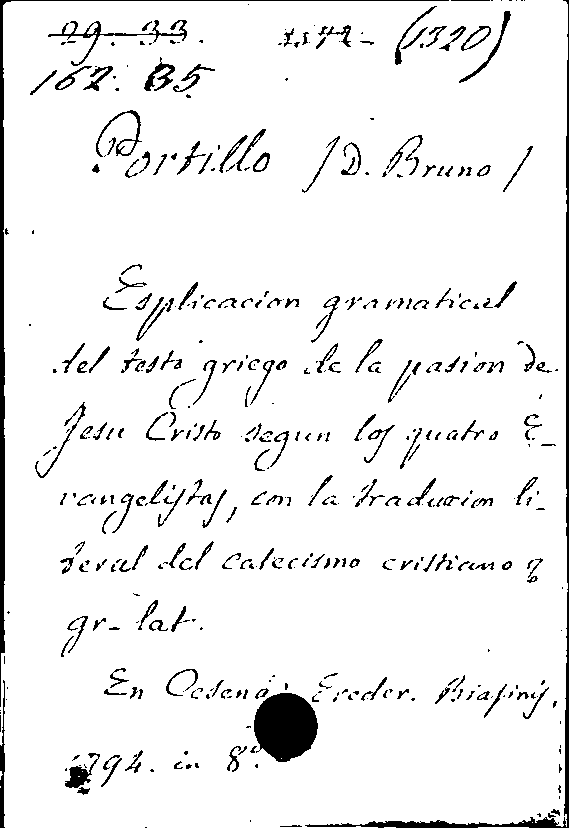 29. 33. (1320)
162. B5
Portillo / D. Bruno /
Esplicacion gramatical
del testo griego de la pasion de
Jesu Cristo segun los quatro E-
vangelistas, con la traducion li-
teral del catecismo cristiano
gr- lat.
En Cesena: Ereder. Biasinj,
1794. in 8º.